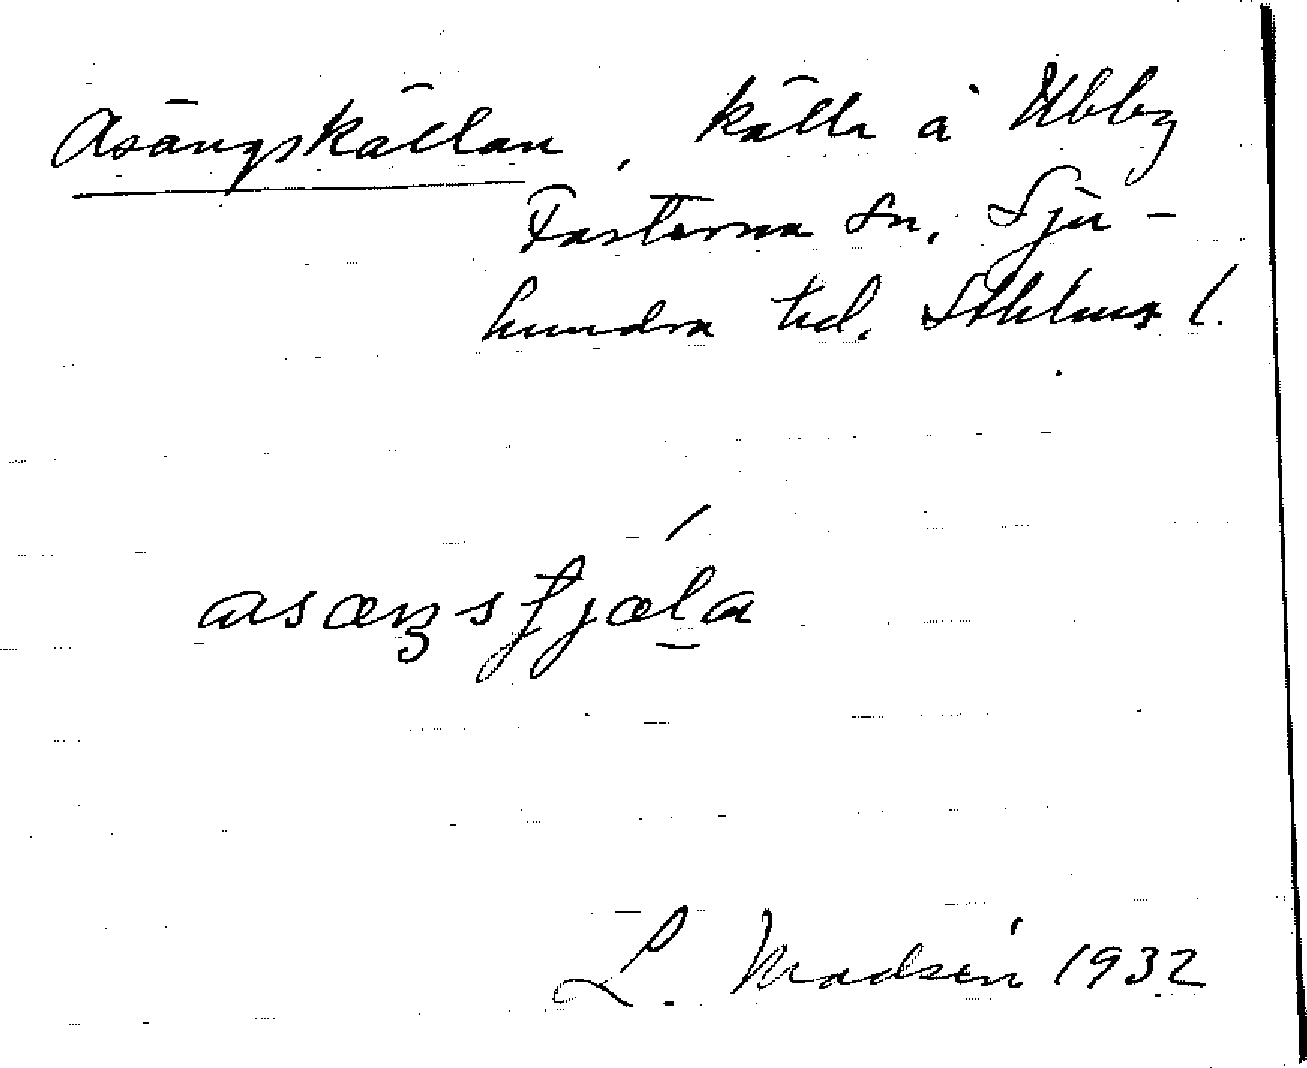 Asängskällan, källa å Ubby
Fasterna sn, Sju-
hundra hd. Sthlms l.
asæŋsʃjæla
L. Madsén 1932